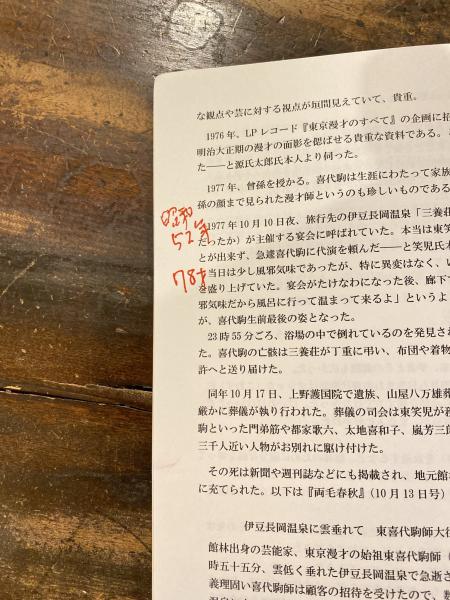 な観点や芸に対する視点が垣間見えていて、貴重。
1976年、LPレコード『東京漫才のすべて』の企画に招
明治大正期の漫才の面影を偲ばせる貴重な資料である。
た――と源氏太郎氏本人より伺った。
1977年、曾孫を授かる。喜代駒は生涯にわたって家族
孫の顔まで見られた漫才師というのも珍しいものである
昭和
52年
78才
1977年10月10日夜、旅行先の伊豆長岡温泉「三養荘
だったか）が主催する宴会に呼ばれていた。本当は東笑
とが出来ず、急遽喜代駒に代演を頼んだ――と笑児氏本
当日は少し風邪気味であったが、特に異変はなく、い
を盛り上げていた。宴会がたけなわになった後、廊下で
邪気味だから風呂に行って温まって来るよ」というよ
が、喜代駒生前最後の姿となった。
23時55分ごろ、浴場の中で倒れているのを発見さ
た。喜代駒の亡骸は三養荘が丁重に弔い、布団や着物
許へと送り届けた。
同年10月17日、上野護国院で遺族、山屋八万雄葬
厳かに葬儀が執り行われた。葬儀の司会は東笑児が務
駒といった門弟筋や都家歌六、太地喜和子、嵐芳三郎
三千人近い人物がお別れに駆け付けた。
その死は新聞や週刊誌などにも掲載され、地元館林
に充てられた。以下は『両毛春秋』（10月13日号）
伊豆長岡温泉に雲垂れて　東喜代駒師大往
館林出身の芸能家、東京漫才の始祖東喜代駒師（
時五十五分、雲低く垂れた伊豆長岡温泉で急逝さ
義理固い喜代駒師は顧客の招待を受けたので、